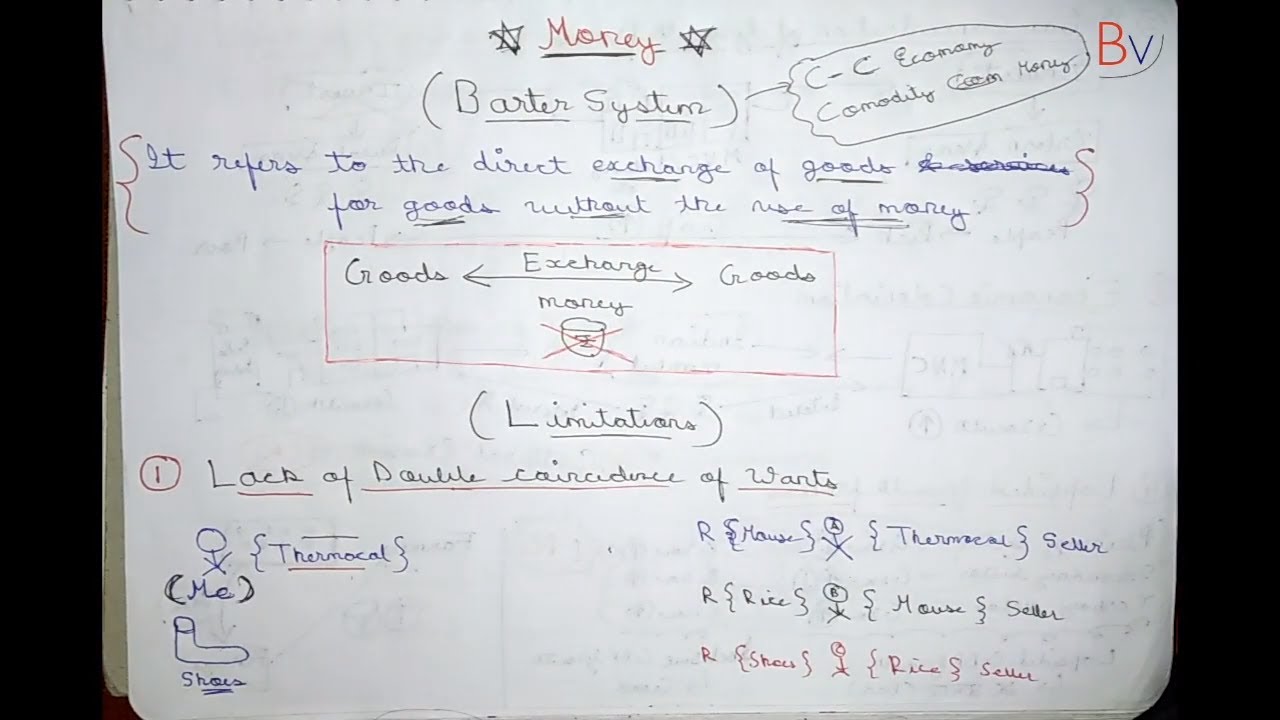 Money
BV
(Barter System)
C-C Economy
Comodity Money
{It refers to the direct exchange of goods
for goods without the use of money.}
Goods Exchange Goods
money
(Limitations)
① Lack of Double coincidence of Wants
{Thermocal}
(Me)
Shoes
R {Mouse} A {Thermocal} Seller
R {Rice} B {Mouse} Seller
R {Shoes} C {Rice} Seller